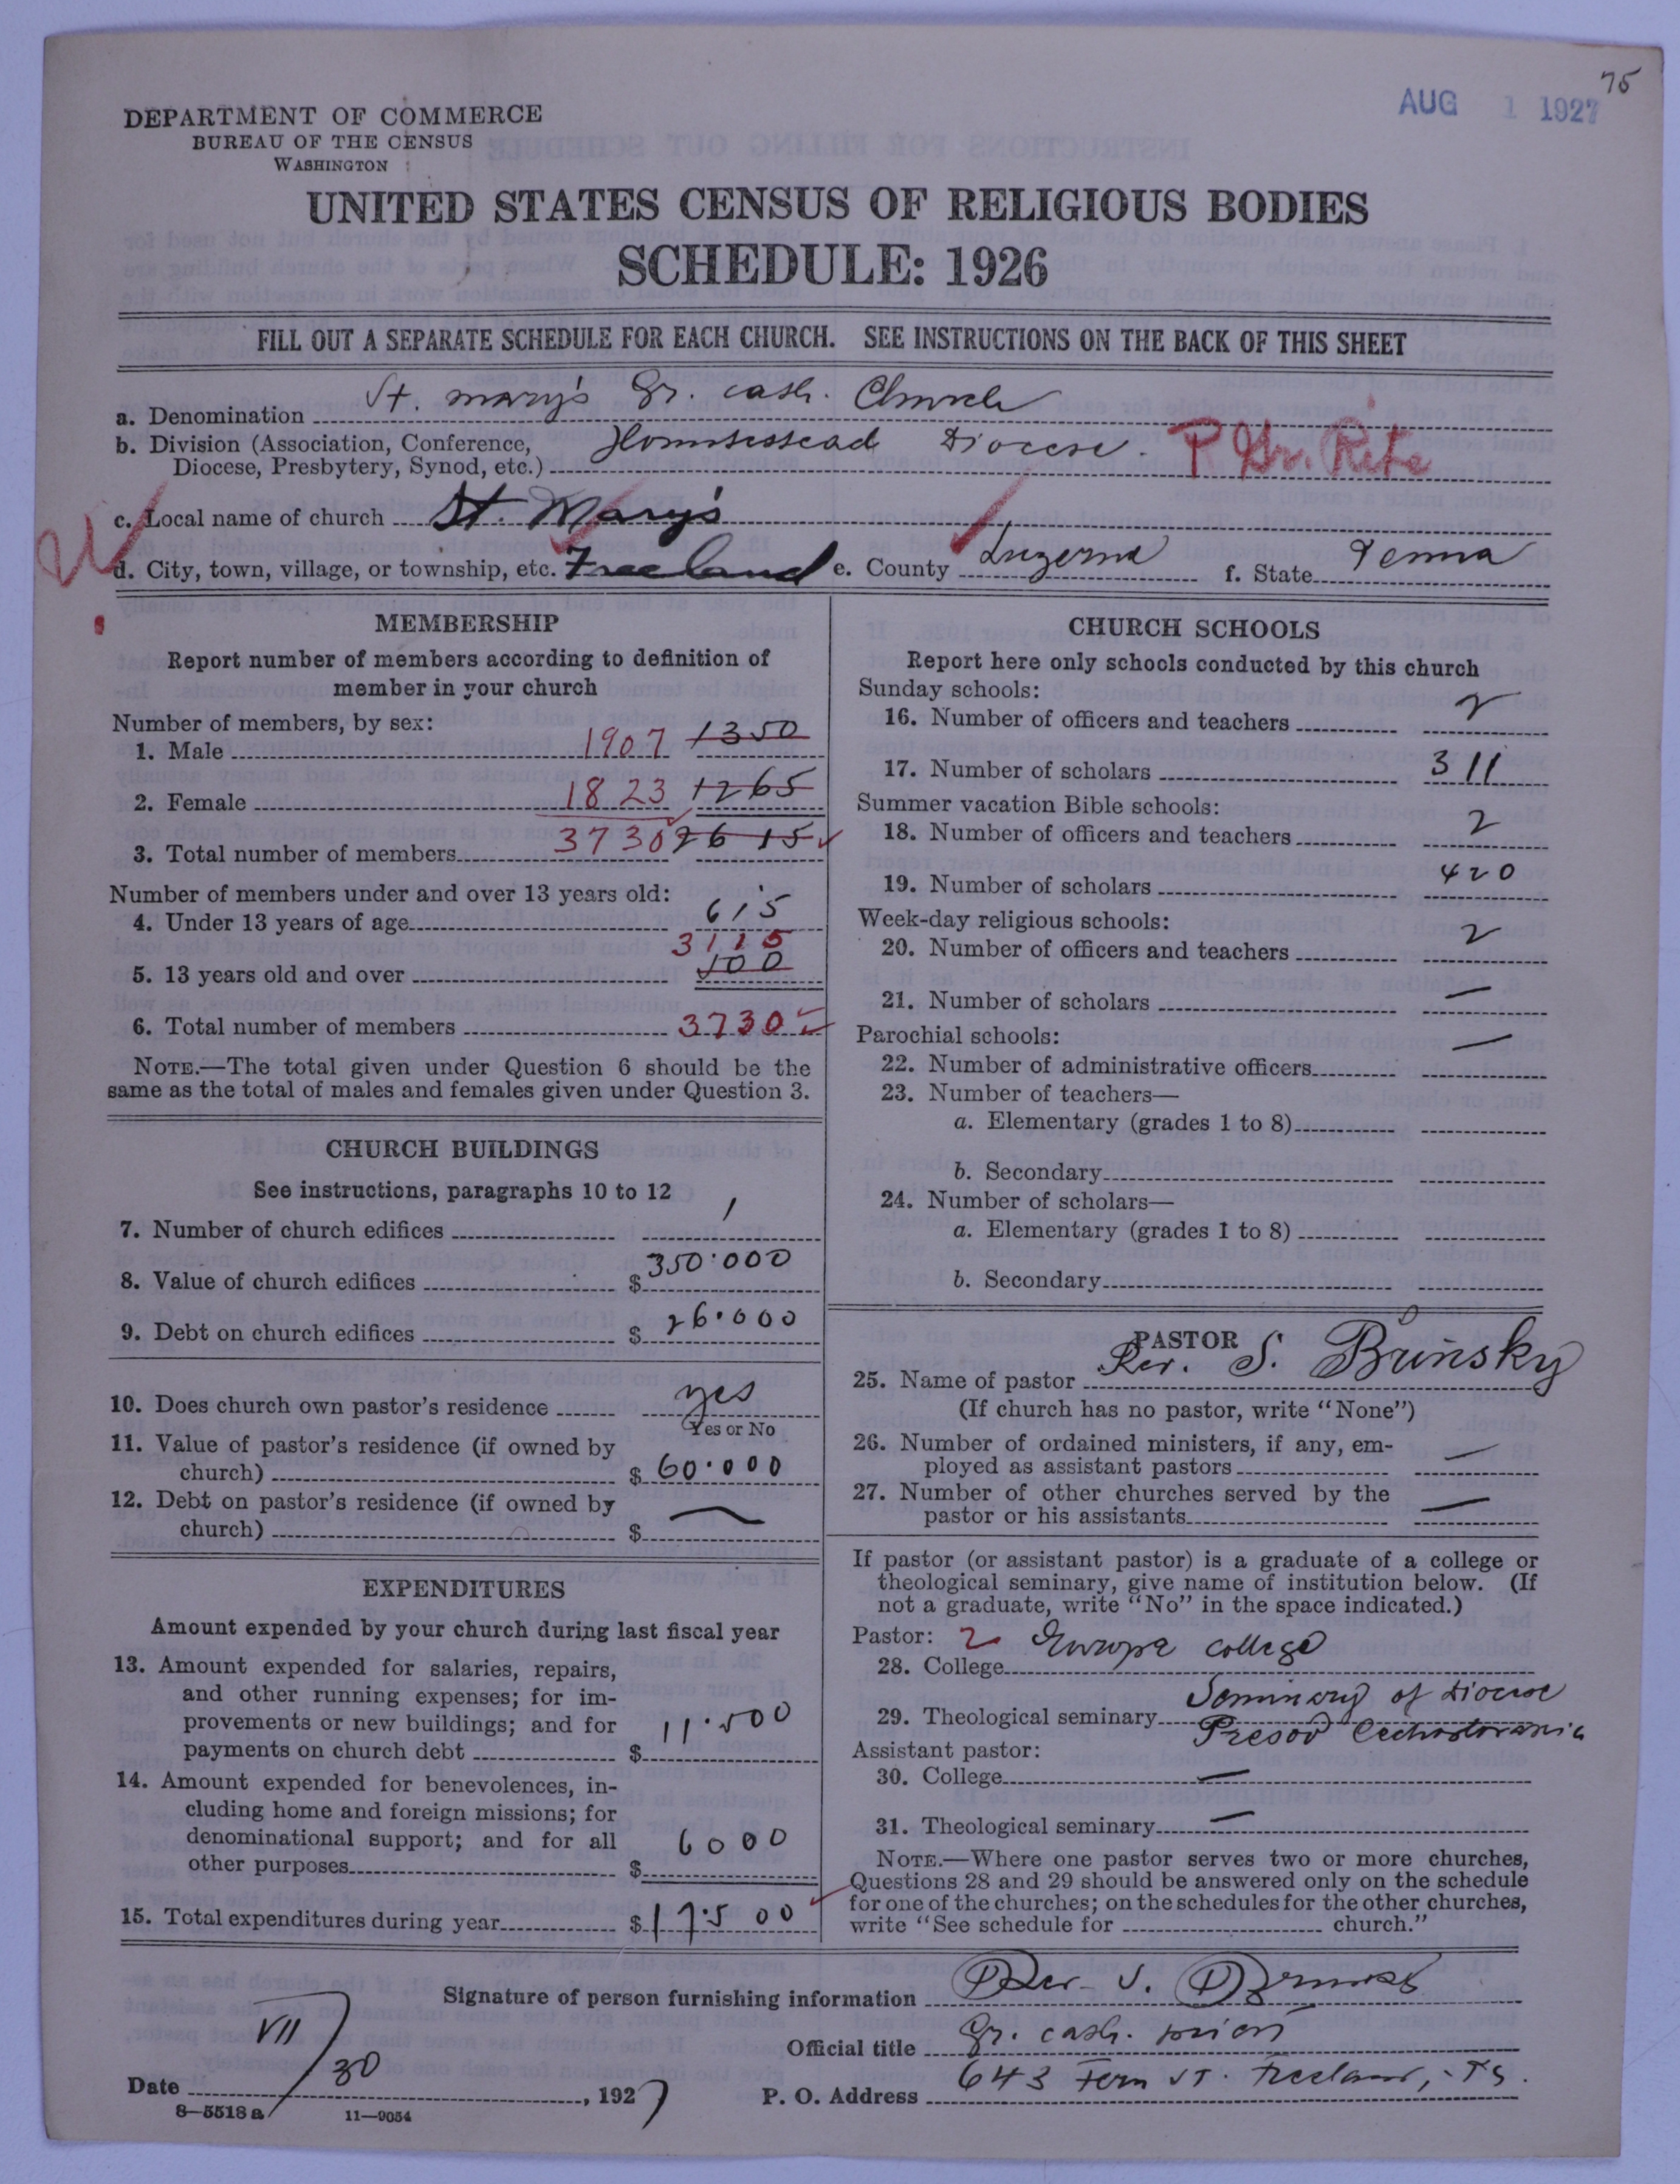 75
AUG 1 1927
DEPARTMENT OF COMMERCE
BUREAU OF THE CENSUS
WASHINGTON
UNITED STATES CENSUS OF RELIGIOUS BODIES
SCHEDULE: 1926
FILL OUT A SEPARATE SCHEDULE FOR EACH CHURCH. SEE INSTRUCTIONS ON THE BACK OF THIS SHEET
a. Denomination St. mary's Gr. cath. Church
b. Division (Association, Conference, Diocese, Presbytery, Synod, etc.) Homestead Diocese. R Gr. Rite
c. Local name of church St. Mary's
d. City, town, village, or township, etc. Freeland e. County Luzerna f. State Penna
MEMBERSHIP
Report number of members according to definition of
member in your church
Number of members, by sex:
1. Male 1907 1350
2. Female 1823 1265
3. Total number of members 3730 2615
Number of members under and over 13 years old:
4. Under 13 years of age 615
3115
5. 13 years old and over 500
6. Total number of members 3730
NOTE.—The total given under Question 6 should be the
same as the total of males and females given under Question 3.
CHURCH BUILDINGS
See instructions, paragraphs 10 to 12
7. Number of church edifices 1
8. Value of church edifices $ 350.000
9. Debt on church edifices $ 26.000
10. Does church own pastor's residence yes
Yes or No
11. Value of pastor's residence (if owned by
church) $ 60.000
12. Debt on pastor's residence (if owned by
church) $ —
EXPENDITURES
Amount expended by your church during last fiscal year
13. Amount expended for salaries, repairs,
and other running expenses; for im-
provements or new buildings; and for
payments on church debt $ 11.500
14. Amount expended for benevolences, in-
cluding home and foreign missions; for
denominational support; and for all
other purposes $ 6000
15. Total expenditures during year $ 17.500
CHURCH SCHOOLS
Report here only schools conducted by this church
Sunday schools:
16. Number of officers and teachers 2
17. Number of scholars 311
Summer vacation Bible schools:
18. Number of officers and teachers 2
19. Number of scholars 420
Week-day religious schools:
20. Number of officers and teachers 2
21. Number of scholars —
Parochial schools:
22. Number of administrative officers —
23. Number of teachers—
a. Elementary (grades 1 to 8)
b. Secondary
24. Number of scholars—
a. Elementary (grades 1 to 8)
b. Secondary
PASTOR
25. Name of pastor Rev. S. Brinsky
(If church has no pastor, write "None")
26. Number of ordained ministers, if any, em-
ployed as assistant pastors —
27. Number of other churches served by the
pastor or his assistants —
If pastor (or assistant pastor) is a graduate of a college or
theological seminary, give name of institution below. (If
not a graduate, write "No" in the space indicated.)
Pastor: 2
28. College Europe college
29. Theological seminary Seminary of Diocese
Presov
Assistant pastor:
30. College —
31. Theological seminary —
NOTE.—Where one pastor serves two or more churches,
Questions 28 and 29 should be answered only on the schedule
for one of the churches; on the schedules for the other churches,
write "See schedule for church."
Signature of person furnishing information Rev. S.
Official title Gr. cath.
Date VII/30, 1927 P. O. Address 643 Fern ST. Freeland,
8—5518a 11—9054